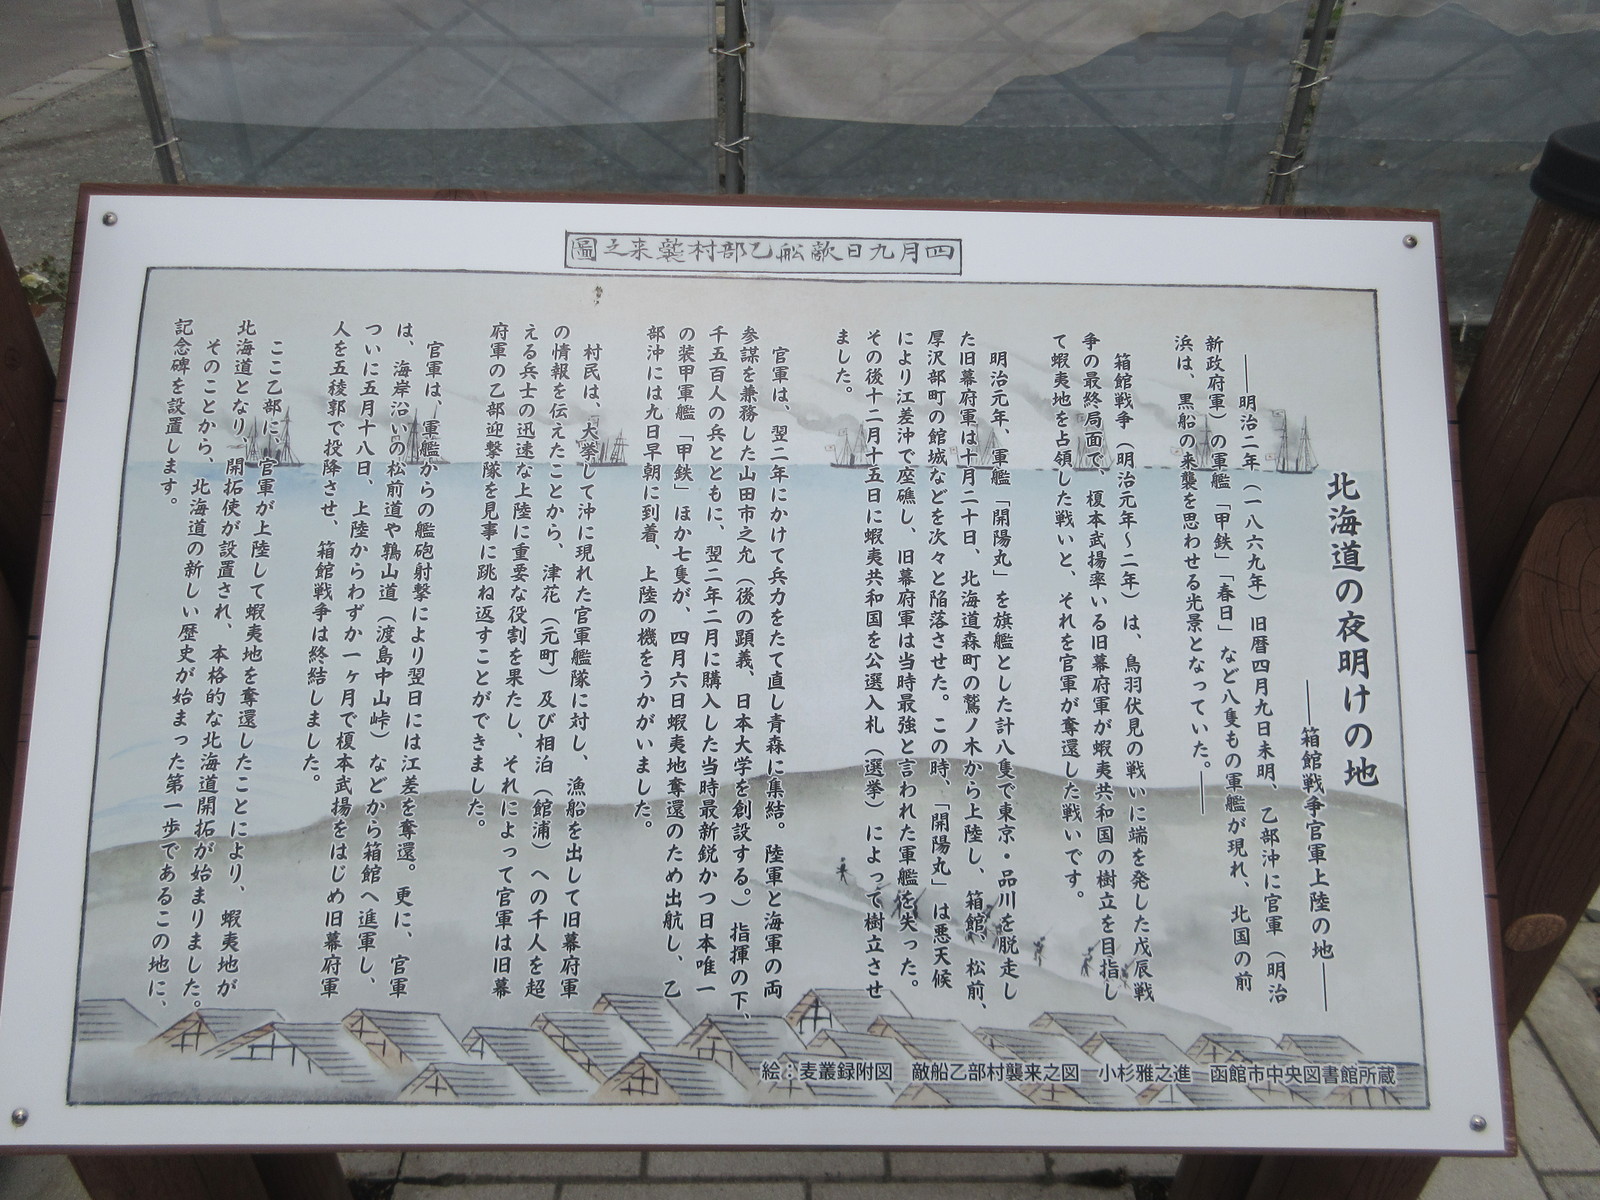 四月九日敵船乙部村襲来之圖
北海道の夜明けの地
――箱館戦争官軍上陸の地――
――明治二年（一八六九年）旧暦四月九日未明、乙部沖に官軍（明治
新政府軍）の軍艦「甲鉄」「春日」など八隻もの軍艦が現れ、北国の前
浜は、黒船の来襲を思わせる光景となっていた。――
箱館戦争（明治元年～二年）は、鳥羽伏見の戦いに端を発した戊辰戦
争の最終局面で、榎本武揚率いる旧幕府軍が蝦夷共和国の樹立を目指し
て蝦夷地を占領した戦いと、それを官軍が奪還した戦いです。
明治元年、軍艦「開陽丸」を旗艦とした計八隻で東京・品川を脱走し
た旧幕府軍は十月二十日、北海道森町の鷲ノ木から上陸し、箱館、松前、
厚沢部町の館城などを次々と陥落させた。この時、「開陽丸」は悪天候
により江差沖で座礁し、旧幕府軍は当時最強と言われた軍艦を失った。
その後十二月十五日に蝦夷共和国を公選入札（選挙）によって樹立させ
ました。
官軍は、翌二年にかけて兵力をたて直し青森に集結。陸軍と海軍の両
参謀を兼務した山田市之允（後の顕義、日本大学を創設する。）指揮の下、
千五百人の兵とともに、翌二年二月に購入した当時最新鋭かつ日本唯一
の装甲軍艦「甲鉄」ほか七隻が、四月六日蝦夷地奪還のため出航し、乙
部沖には九日早朝に到着、上陸の機をうかがいました。
村民は、大挙して沖に現れた官軍艦隊に対し、漁船を出して旧幕府軍
の情報を伝えたことから、津花（元町）及び相泊（館浦）への千人を超
える兵士の迅速な上陸に重要な役割を果たし、それによって官軍は旧幕
府軍の乙部迎撃隊を見事に跳ね返すことができました。
官軍は、軍艦からの艦砲射撃により翌日には江差を奪還。更に、官軍
は、海岸沿いの松前道や鶉山道（渡島中山峠）などから箱館へ進軍し、
ついに五月十八日、上陸からわずか一ヶ月で榎本武揚をはじめ旧幕府軍
人を五稜郭で投降させ、箱館戦争は終結しました。
ここ乙部に、官軍が上陸して蝦夷地を奪還したことにより、蝦夷地が
北海道となり、開拓使が設置され、本格的な北海道開拓が始まりました。
そのことから、北海道の新しい歴史が始まった第一歩であるこの地に、
記念碑を設置します。
絵：麦叢録附図　敵船乙部村襲来之図　小杉雅之進　函館市中央図書館所蔵